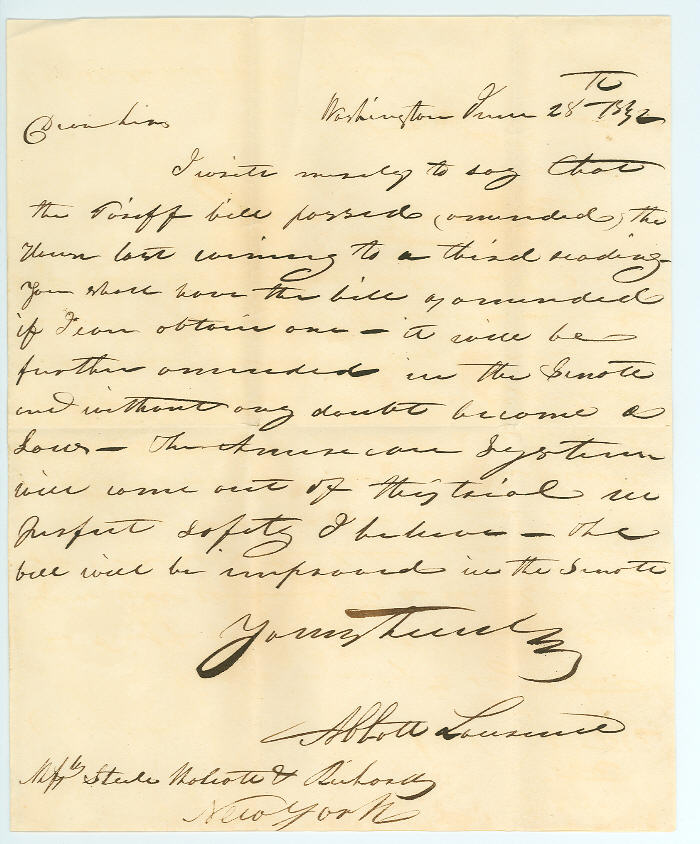 Washington June 28th 1832
Dear Sirs
I write merely to say that
the Tariff bill passed (amended) the
House last evening to a third reading
You shall have the bill as amended
if I can obtain one - it will be
further amended in the Senate
and without any doubt become a
Law - The American System
will come out of this trial in
perfect safety I believe - The
bill will be improved in the Senate
Yours truly
Abbott Lawrence
Messrs Steele Wolcott & Richards
New York